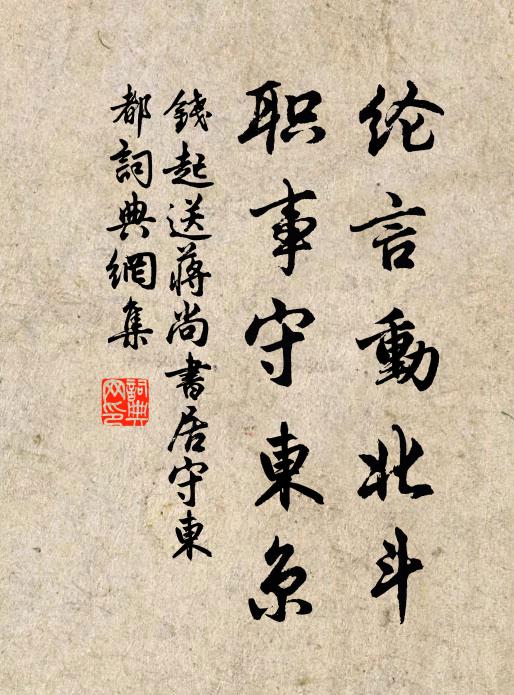 纶言動北斗
职事守東京
錢起送蔣尚書居守東
都詞典網集
詞典
网印